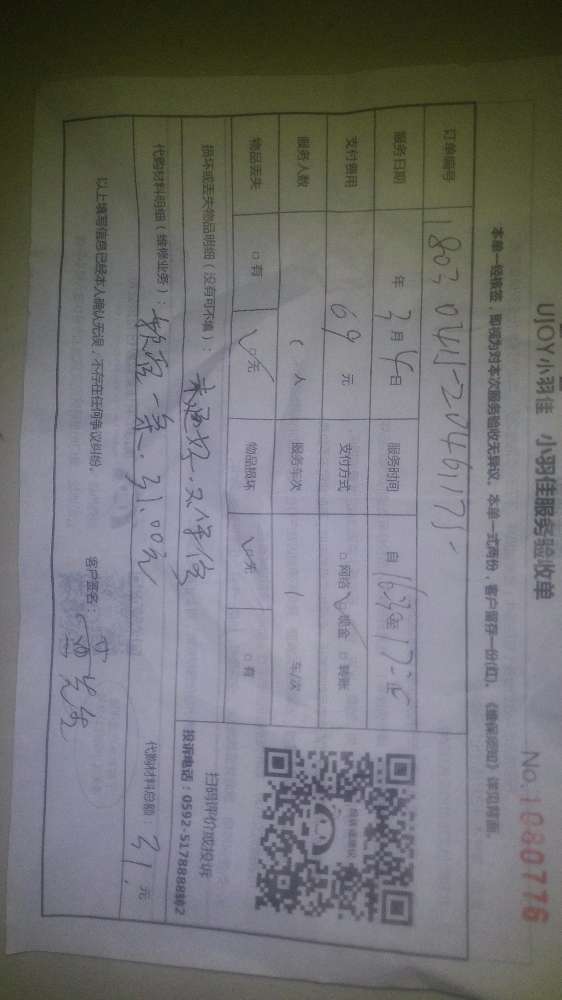 UJOY小羽佳 小羽佳服务验收单
No.1080776
本单一经接签，即视为对本次服务验收无异议。本单一式两份，客户留存一份(红)。《维保须知》详见背面。
订单编号
服务日期 年 3月4日 服务时间 自
支付费用 69 元 支付方式 □网络 □现金 □转账
服务人数 1 人 服务车次 1 车/次
物品丢失 □有 □无 物品损坏 □无 □有
损坏或丢失物品明细（没有可不填）：
代购材料明细（维修业务）：软管一条. 31.00元 代购材料总额：31. 元
以上填写信息已经本人确认无误，不存在任何争议纠纷。
客户签名：
扫码评价或投诉
投诉电话：0592-5178888转2